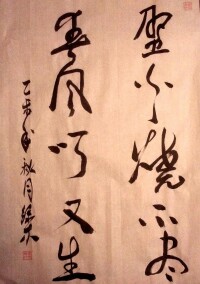 野火燒不尽
春风吹又生
乙未年秋月